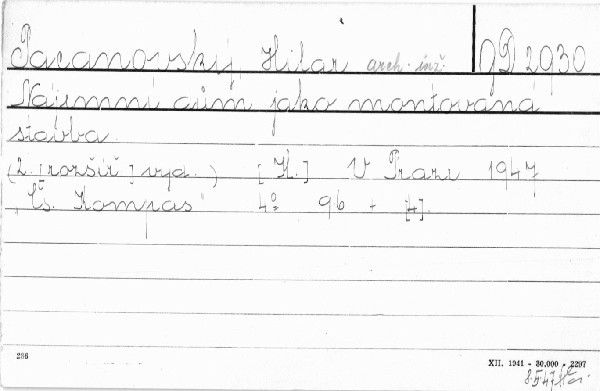 Pacanovskij, Hilar arch. inž. 9D 2930
Nájemní dům jako montovaná
stavba.
(2. [rozšiř.] vyd.) [H.] V Praze 1947
"Čs. Kompas" 4° 96 + [4].
286
XII. 1941 - 30.000 - 2297